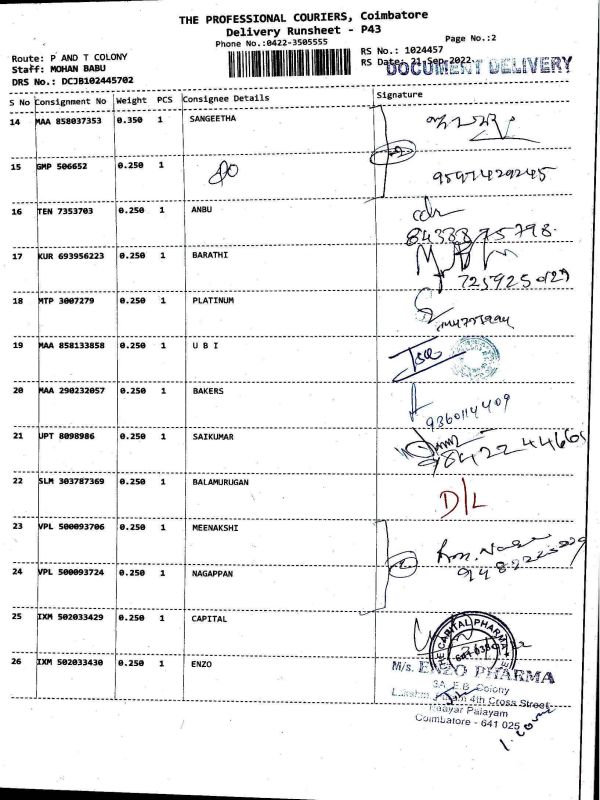 THE PROFESSIONAL COURIERS, Coimbatore
Delivery Runsheet - P43
Phone No.:0422-3505555
Page No.:2
Route: P AND T COLONY
RS No.: 1024457
Staff: MOHAN BABU
RS Date: 21 Sep 2022
DOCUMENT DELIVERY
DRS No.: DCJB102445702
S No Consignment No Weight PCS Consignee Details Signature
14 MAA 858037353 0.350 1 SANGEETHA
15 GMP 506652 0.250 1
16 TEN 7353703 0.250 1 ANBU
17 KUR 693956223 0.250 1 BARATHI
18 MTP 3007279 0.250 1 PLATINUM
19 MAA 858133858 0.350 1 U B I
20 MAA 290232057 0.250 1 BAKERS
9360114409
21 UPT 8098986 0.250 1 SAIKUMAR
22 SLM 303787369 0.250 1 BALAMURUGAN D/L
23 VPL 500093706 0.250 1 MEENAKSHI
24 VPL 500093724 0.250 1 NAGAPPAN
25 IXM 502033429 0.250 1 CAPITAL
THE CAPITAL PHARMA
26 IXM 502033430 0.250 1 ENZO
M/s. ENZO PHARMA
3A, E.B. Colony
4th Cross Street
Palayam
Coimbatore - 641 025